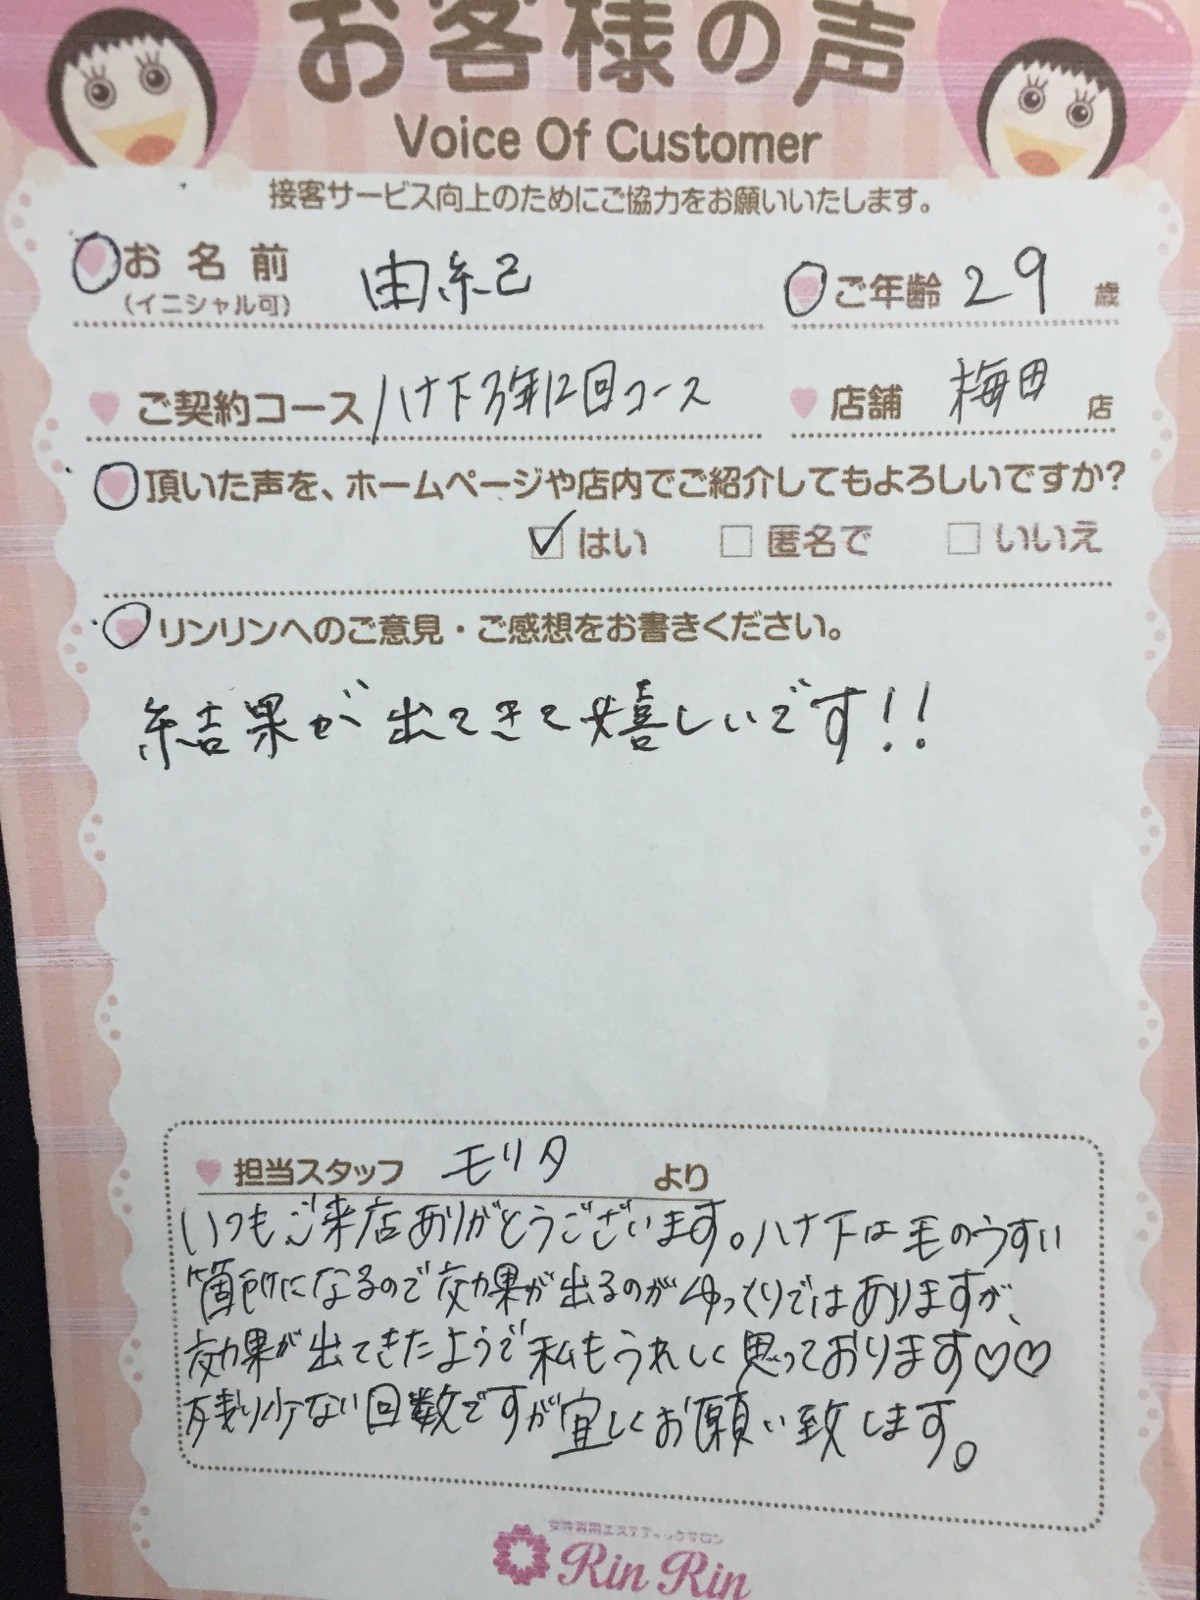 お客様の声
Voice Of Customer
接客サービス向上のためにご協力をお願いいたします。
お名前 由紀 ご年齢 29 歳
(イニシャル可)
ご契約コース ハナ下3年12回コース 店舗 梅田 店
頂いた声を、ホームページや店内でご紹介してもよろしいですか?
はい 匿名で いいえ
リンリンへのご意見・ご感想をお書きください。
結果が出てきて嬉しいです!!
担当スタッフ モリタ より
いつもご来店ありがとうございます。ハナ下は毛のうすい
箇所になるので効果が出るのがゆっくりではありますが、
効果が出てきたようで私もうれしく思っております♡♡
残り少ない回数ですが宜しくお願い致します。
女性専用エステティックサロン
Rin Rin